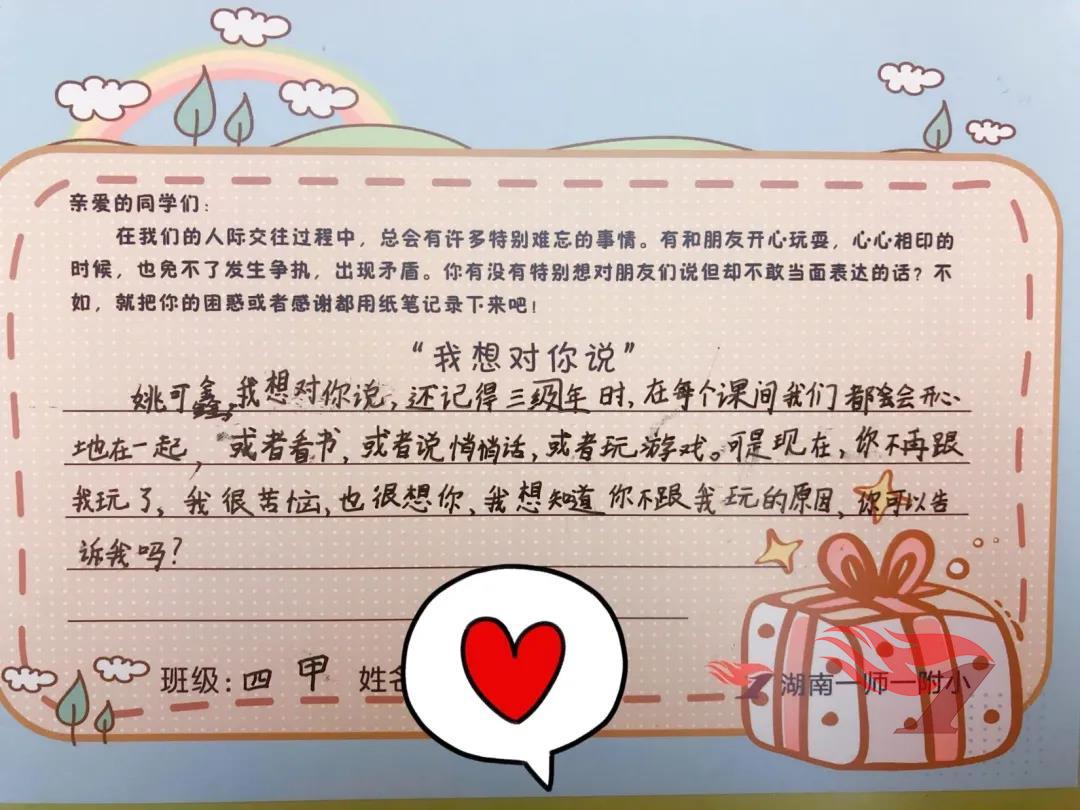 亲爱的同学们:
在我们的人际交往过程中,总会有许多特别难忘的事情。有和朋友开心玩耍,心心相印的
时候,也免不了发生争执,出现矛盾。你有没有特别想对朋友们说但却不敢当面表达的话?不
如,就把你的困惑或者感谢都用纸笔记录下来吧!
“我想对你说”
姚可鑫,我想对你说,还记得三级年时,在每个课间我们都会会开心
地在一起,或者看书,或者说悄悄话,或者玩游戏。可是现在,你不再跟
我玩了,我很苦恼,也很想你,我想知道你不跟我玩的原因,你可以告
诉我吗?
班级:四甲 姓名
湖南一师一附小